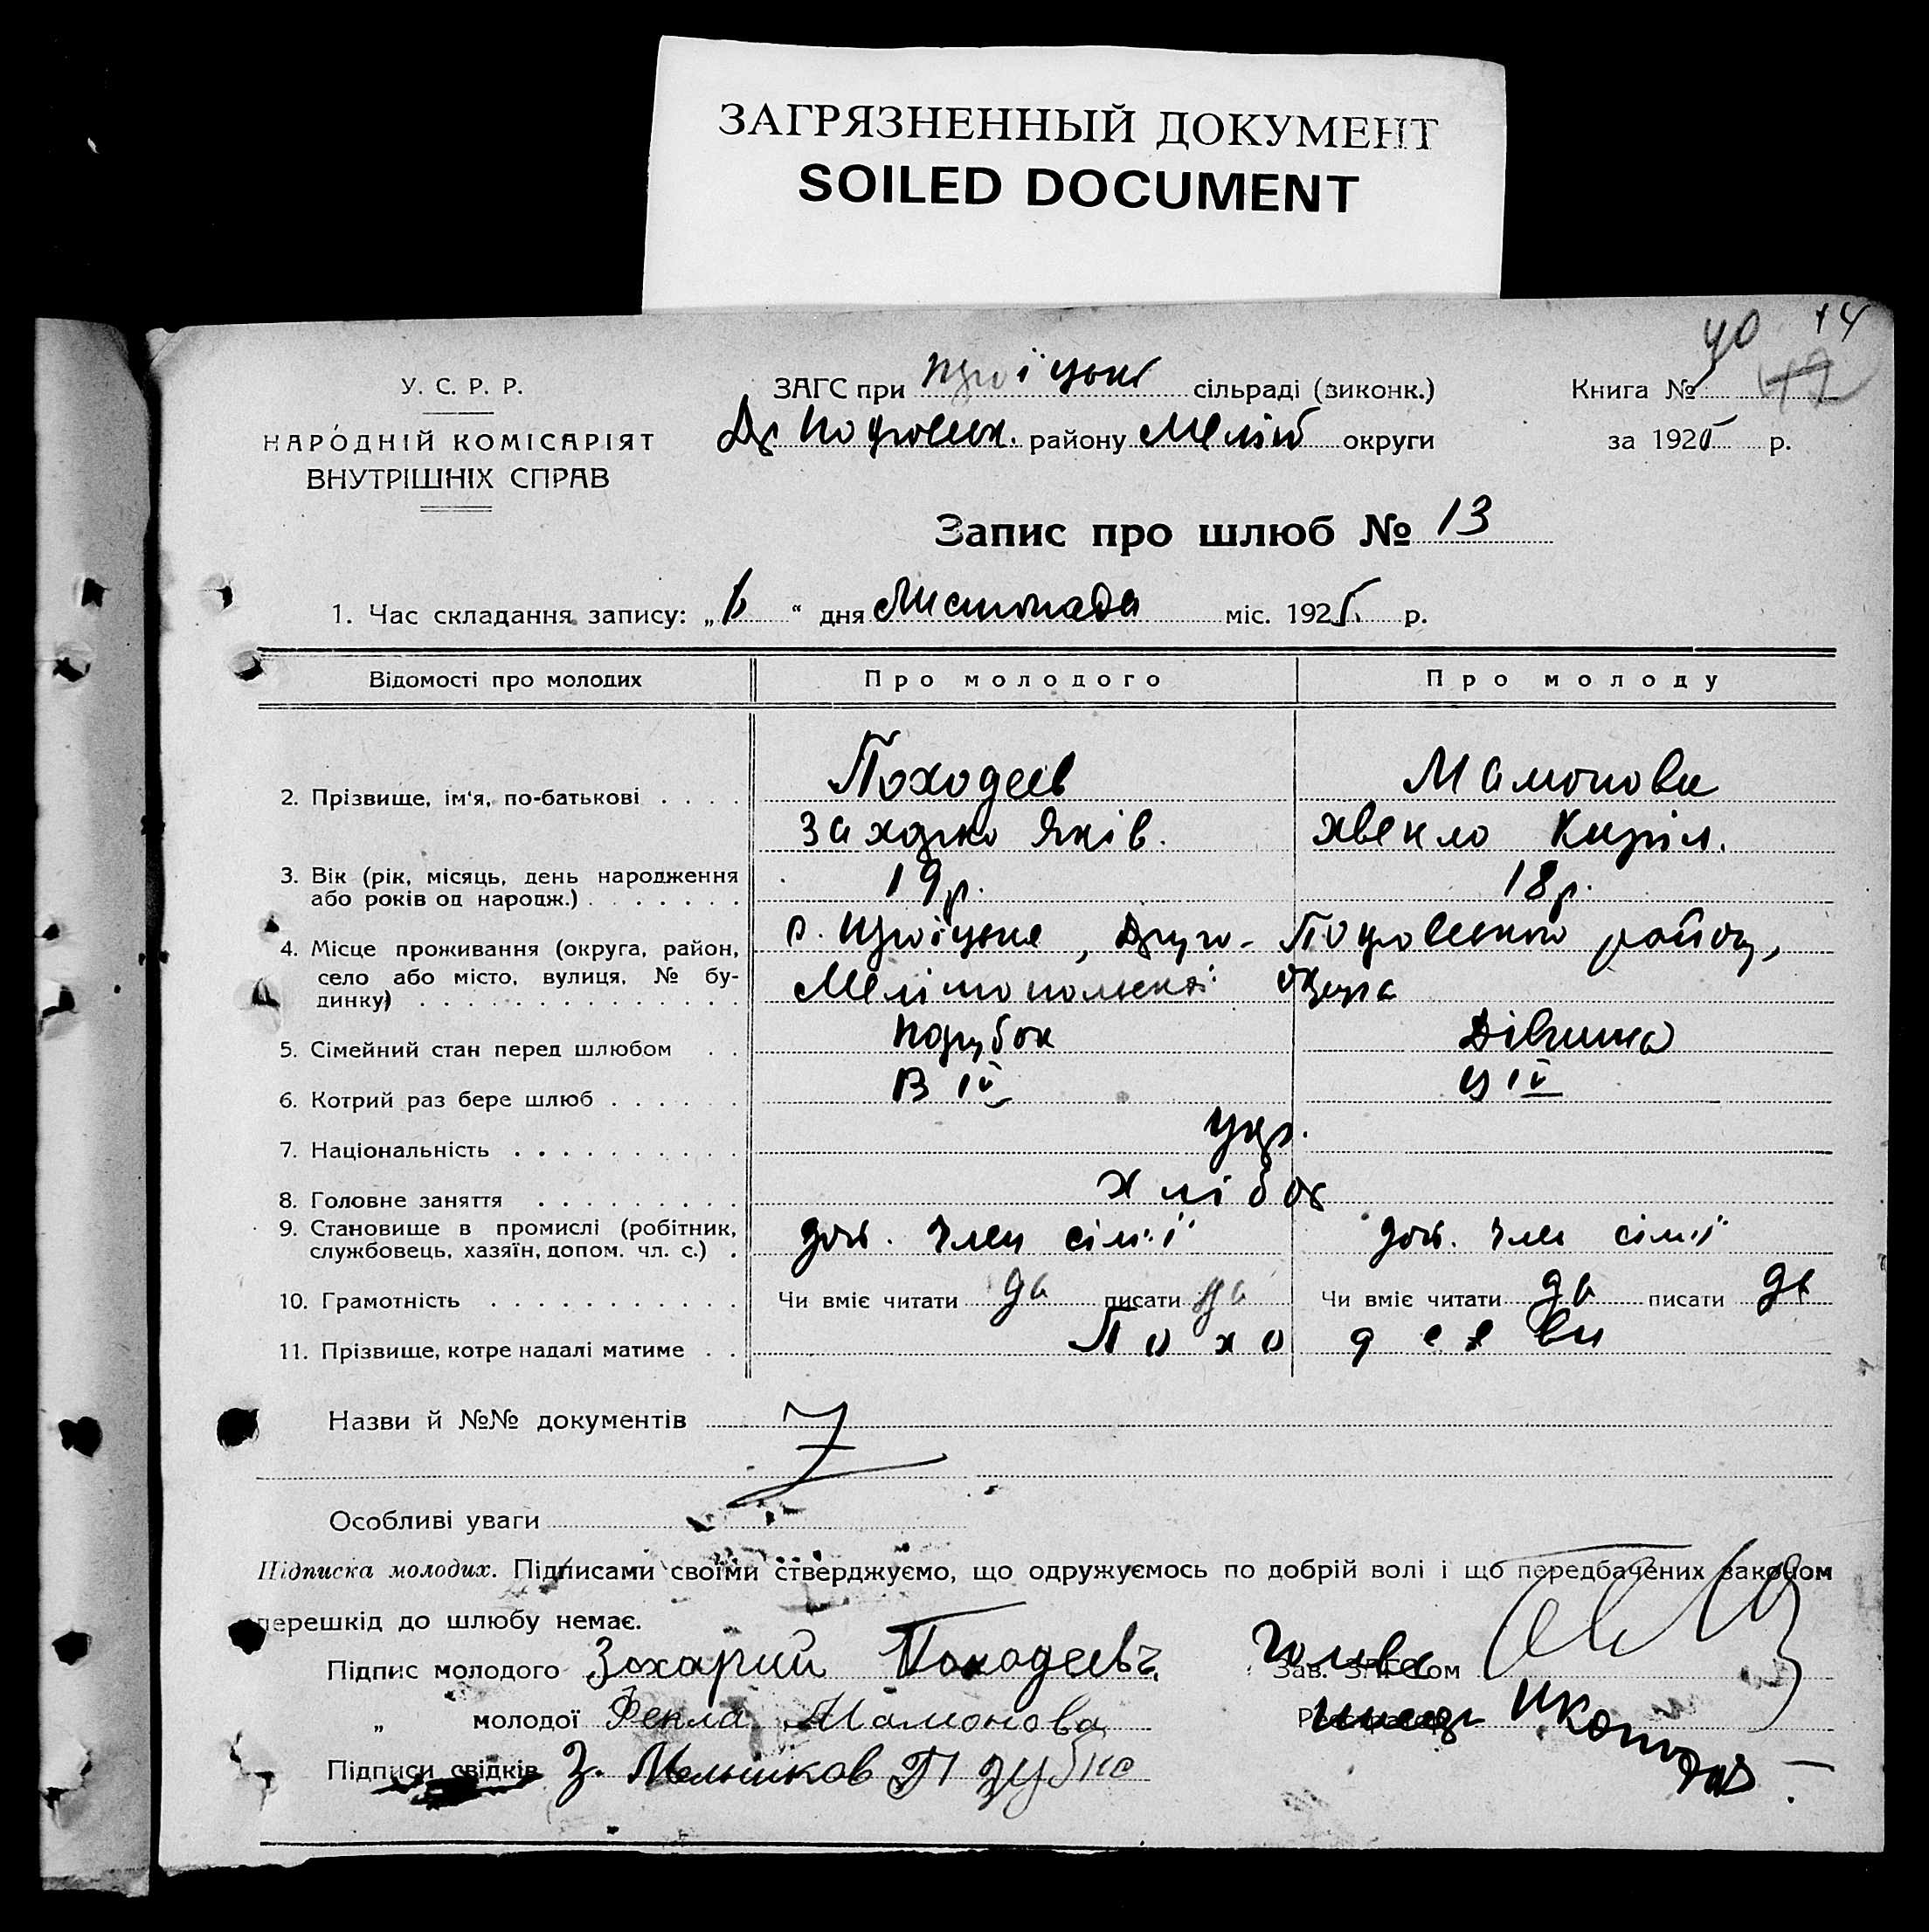 ЗАГРЯЗНЕННЫЙ ДОКУМЕНТ
SOILED DOCUMENT
40 14
У. С. Р. Р.
ЗАГС при Троїцькі сільраді (виконк.)
Книга № 42
НАРОДНІЙ КОМІСАРІЯТ
ВНУТРІШНІХ СПРАВ
Др Покровськ. району Меліт округи
за 1925 р.
Запис про шлюб № 13
1. Час складання запису: „6 “ дня Листопада міс. 1925 р.
Відомості про молодих Про молодого Про молоду
2. Прізвище, ім'я, по-батькові . . . . Походеєв Мамонова
Захарко Яків. Хвекло Кирил.
3. Вік (рік, місяць, день народження
або років од народж.) . . . . . . . 19 р. 18 р.
4. Місце проживання (округа, район,
село або місто, вулиця, № бу-
динку) . . . . . . . . . . . . . .
с. Троїцьке, Друго- Покровського району,
Мелітопольської округа
5. Сімейний стан перед шлюбом . . Парубок Дівчина
6. Котрий раз бере шлюб . . . . . . В 1й у 1й
7. Національність . . . . . . . . . . укр.
8. Головне заняття . . . . . . . . . хлібор
9. Становище в промислі (робітник,
службовець, хазяїн, допом. чл. с.) . доп. член сім'ї доп. член сім'ї
10. Грамотність . . . . . . . . . . . Чи вміє читати да писати да Чи вміє читати да писати да
11. Прізвище, котре надалі матиме . . Походеєви
Назви й №№ документів
Особливі уваги
Підписка молодих. Підписами своїми стверджуємо, що одружуємось по добрій волі і що передбачених законом
перешкід до шлюбу немає.
Підпис молодого Захарий Походеевъ Зав. ЗАГСом Голова
„ молодої Фекла Мамонова Реєстратор
Підписи свідків З. Мельников П Зубко